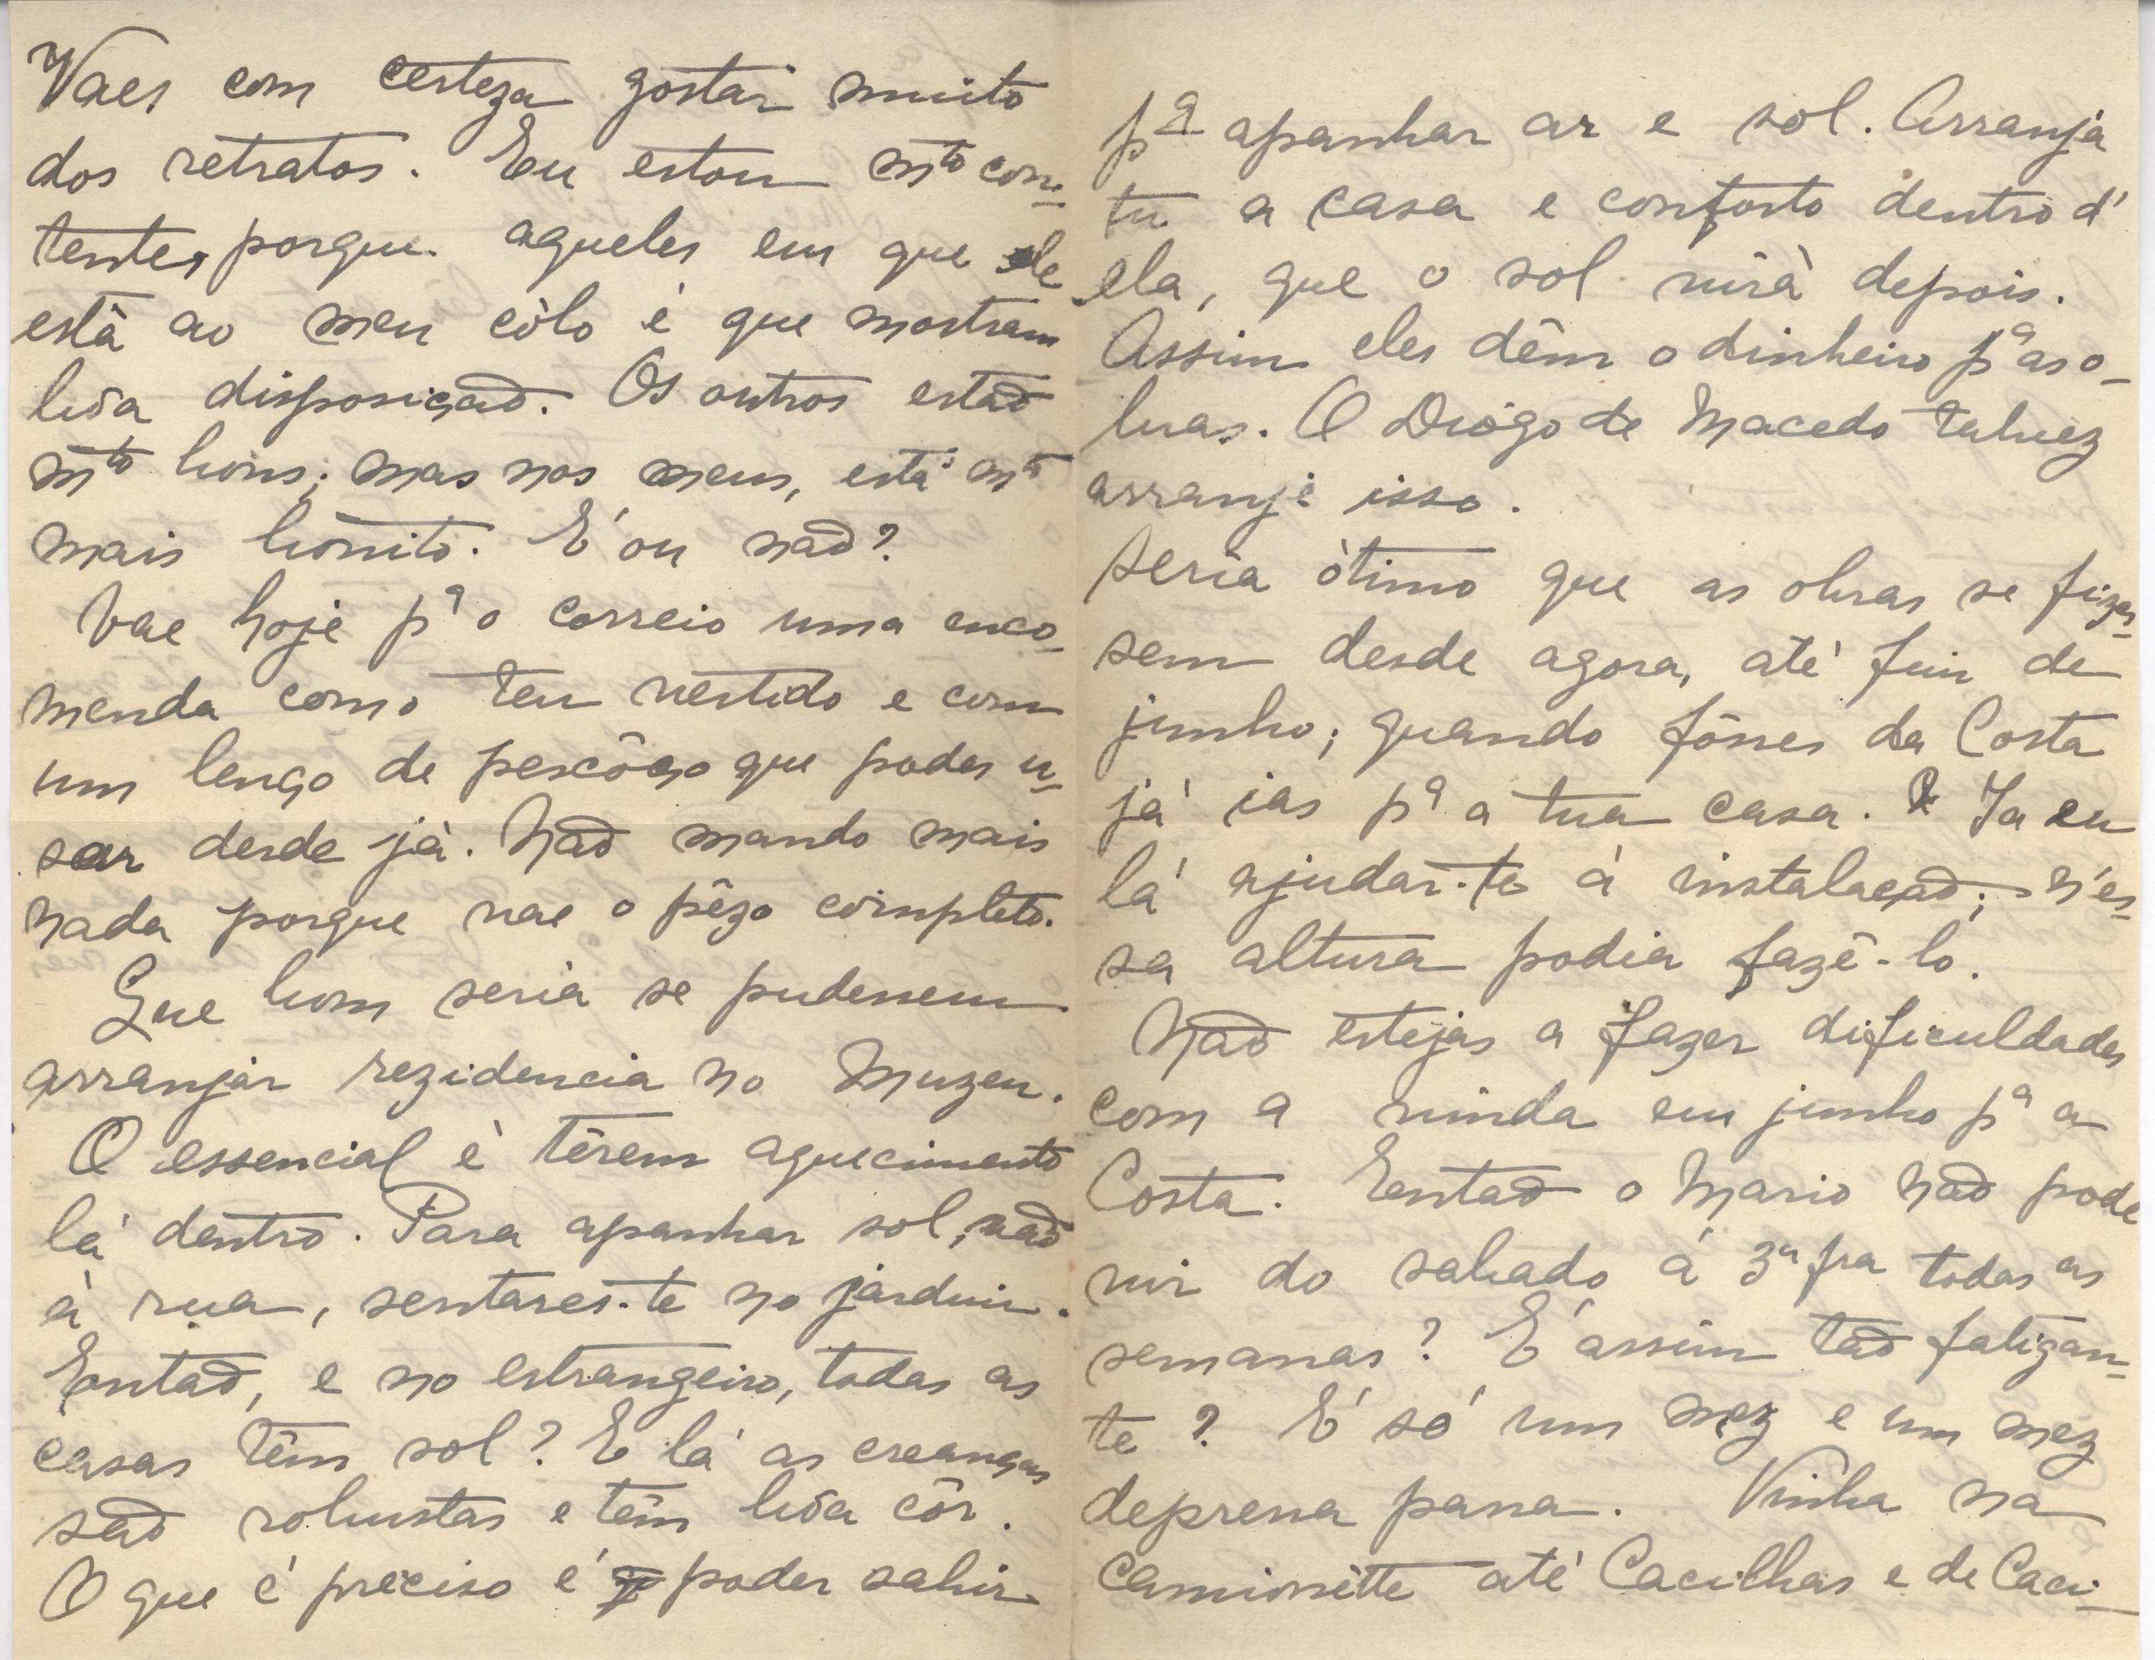 Vaes com certeza gostar muito
dos retratos. Eu estou mto con-
tente, porque aqueles em que ele
está ao meu cólo é que mostram
bôa disposição. Os outros estão
mto bons; mas nos meus, está mto
mais bonito. É ou não?
Vae hoje pª o correio uma enco-
menda com o teu vestido e com
um lenço de pescôço que podes u-
sar desde já. Não mando mais
nada porque vae o pêzo completo.
Que bom seria se pudessem
arranjar rezidencia no Muzeu.
O essencial é têrem aquecimento
lá dentro. Para apanhar sol, não
à rua, sentares-te no jardim.
Então, e no estrangeiro, todas as
casas têm sol? E lá as creanças
são robustas e têm bôa côr.
O que é preciso é poder sahir
pª apanhar ar e sol. Arranja
tu a casa e conforto dentro d'
ela, que o sol virà depois.
Assim eles dêm o dinheiro pª as o-
bras. O Diógo de Macedo talvez
arranje isso.
Seria òtimo que as obras se fizes-
sem desde agora, até fim de
junho; quando fôsses da Costa
já ias pª a tua casa. Ia eu
lá ajudar-te á instalação; n'es-
sa altura podia fazê-lo.
Não estejas a fazer dificuldades
com a vinda em junho pª a
Costa. Então o Mario não pode
vir do sabado á 3ª fra todas as
semanas? É assim tão fatigan-
te? É só um mez e um mez
depressa passa. Vinha na
camionètte até Cacilhas e de Caci-